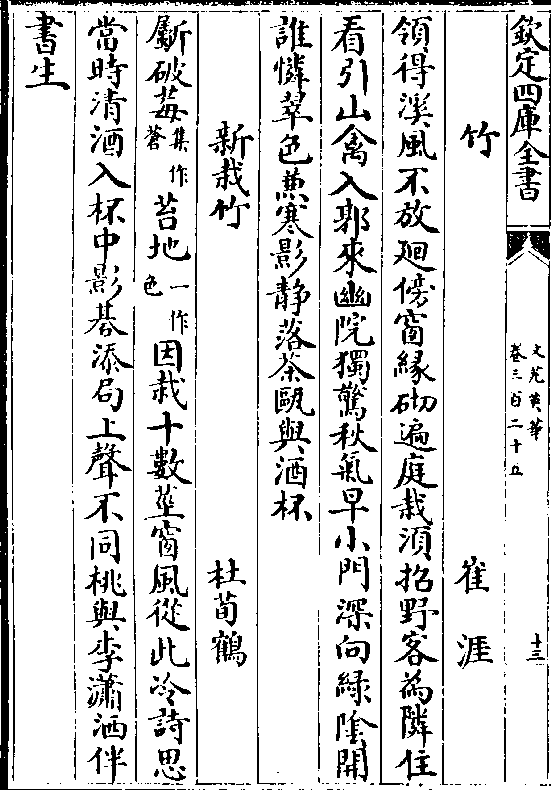 欽定四庫全書
文苑英華
卷三百二十五
十三
竹 崔涯
領得溪風不放廻傍窗緣砌遍庭栽湏招野客為隣住
看引山禽入郭來幽院獨驚秋氣早小門深向綠隂開
誰憐翠色兼寒影静落茶甌與酒杯
新栽竹 杜荀鶴
斸破莓集作蒼苔地一作色因栽十數莖窗風從此冷詩思
當時清酒入杯中影棊添局上聲不同桃與李瀟洒伴
書生